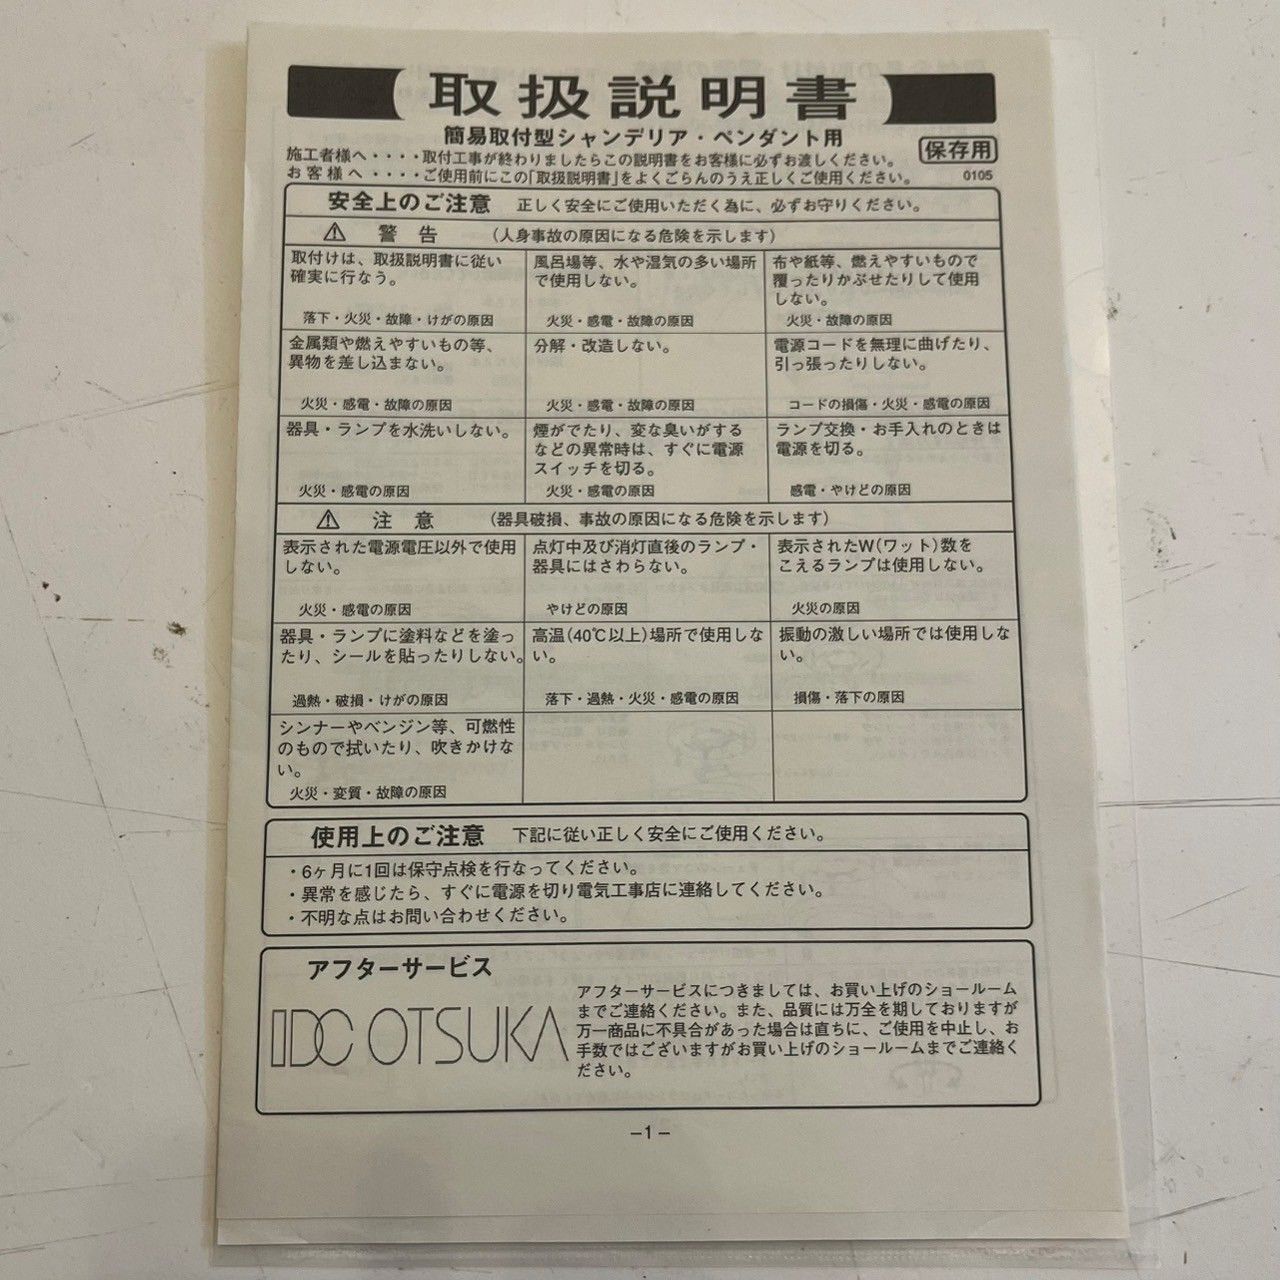 取扱説明書
簡易取付型シャンデリア・ペンダント用
保存用
施工者様へ・・・・取付工事が終わりましたらこの説明書をお客様に必ずお渡しください。
お客様へ・・・・ご使用前にこの「取扱説明書」をよくごらんのうえ正しくご使用ください。
0105
安全上のご注意 正しく安全にご使用いただく為に、必ずお守りください。
⚠ 警告 (人身事故の原因になる危険を示します)
取付けは、取扱説明書に従い
確実に行なう。
落下・火災・故障・けがの原因
風呂場等、水や湿気の多い場所
で使用しない。
火災・感電・故障の原因
布や紙等、燃えやすいもので
覆ったりかぶせたりして使用
しない。
火災・故障の原因
金属類や燃えやすいもの等、
異物を差し込まない。
火災・感電・故障の原因
分解・改造しない。
火災・感電・故障の原因
電源コードを無理に曲げたり、
引っ張ったりしない。
コードの損傷・火災・感電の原因
器具・ランプを水洗いしない。
火災・感電の原因
煙がでたり、変な臭いがする
などの異常時は、すぐに電源
スイッチを切る。
火災・感電の原因
ランプ交換・お手入れのときは
電源を切る。
感電・やけどの原因
⚠ 注意 (器具破損、事故の原因になる危険を示します)
表示された電源電圧以外で使用
しない。
火災・感電の原因
点灯中及び消灯直後のランプ・
器具にはさわらない。
やけどの原因
表示されたW(ワット)数を
こえるランプは使用しない。
火災の原因
器具・ランプに塗料などを塗っ
たり、シールを貼ったりしない。
過熱・破損・けがの原因
高温(40℃以上)場所で使用しな
い。
落下・過熱・火災・感電の原因
振動の激しい場所では使用しな
い。
損傷・落下の原因
シンナーやベンジン等、可燃性
のもので拭いたり、吹きかけな
い。
火災・変質・故障の原因
使用上のご注意 下記に従い正しく安全にご使用ください。
・6ヶ月に1回は保守点検を行なってください。
・異常を感じたら、すぐに電源を切り電気工事店に連絡してください。
・不明な点はお問い合わせください。
アフターサービス
IDC OTSUKA
アフターサービスにつきましては、お買い上げのショールーム
までご連絡ください。また、品質には万全を期しておりますが
万一商品に不具合があった場合は直ちに、ご使用を中止し、お
手数ではございますがお買い上げのショールームまでご連絡く
ださい。
–1–